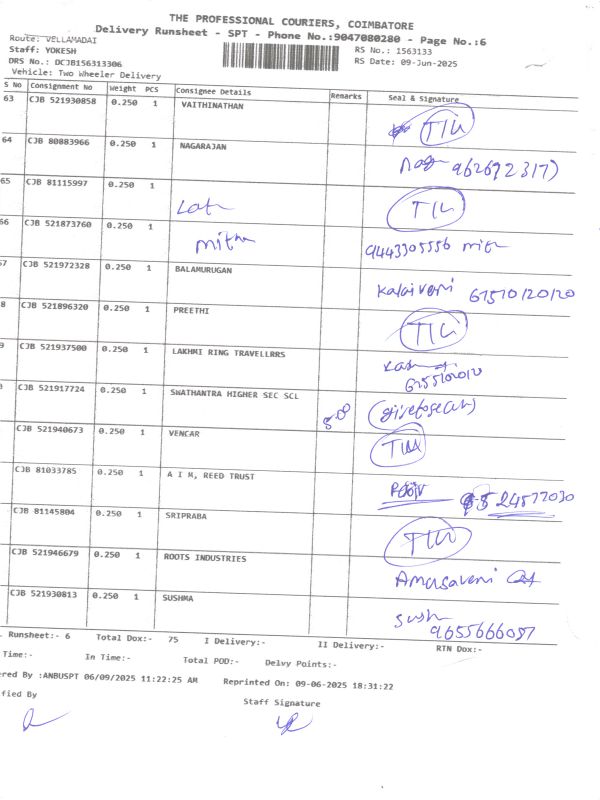 THE PROFESSIONAL COURIERS, COIMBATORE
Delivery Runsheet - SPT - Phone No.:9047080280 - Page No.:6
Route: VELLAMADAI
Staff: YOKESH RS No.: 1563133
DRS No.: DCJB156313306 RS Date: 09-Jun-2025
Vehicle: Two Wheeler Delivery
S No Consignment No Weight PCS Consignee Details Remarks Seal & Signature
63 CJB 521930858 0.250 1 VAITHINATHAN
64 CJB 80883966 0.250 1 NAGARAJAN
65 CJB 81115997 0.250 1
66 CJB 521873760 0.250 1 mithu 9443305556
67 CJB 521972328 0.250 1 BALAMURUGAN Kalaiveni
8 CJB 521896320 0.250 1 PREETHI
9 CJB 521937500 0.250 1 LAKHMI RING TRAVELLRRS
0 CJB 521917724 0.250 1 SWATHANTRA HIGHER SEC SCL
CJB 521940673 0.250 1 VENCAR
CJB 81033785 0.250 1 A I M, REED TRUST
CJB 81145804 0.250 1 SRIPRABA
CJB 521946679 0.250 1 ROOTS INDUSTRIES
CJB 521930813 0.250 1 SUSHMA Sush
9655666057
. Runsheet:- 6 Total Dox:- 75 I Delivery:- II Delivery:- RTN Dox:-
Time:- In Time:- Total POD:- Delvy Points:-
ered By :ANBUSPT 06/09/2025 11:22:25 AM Reprinted On: 09-06-2025 18:31:22
ified By Staff Signature